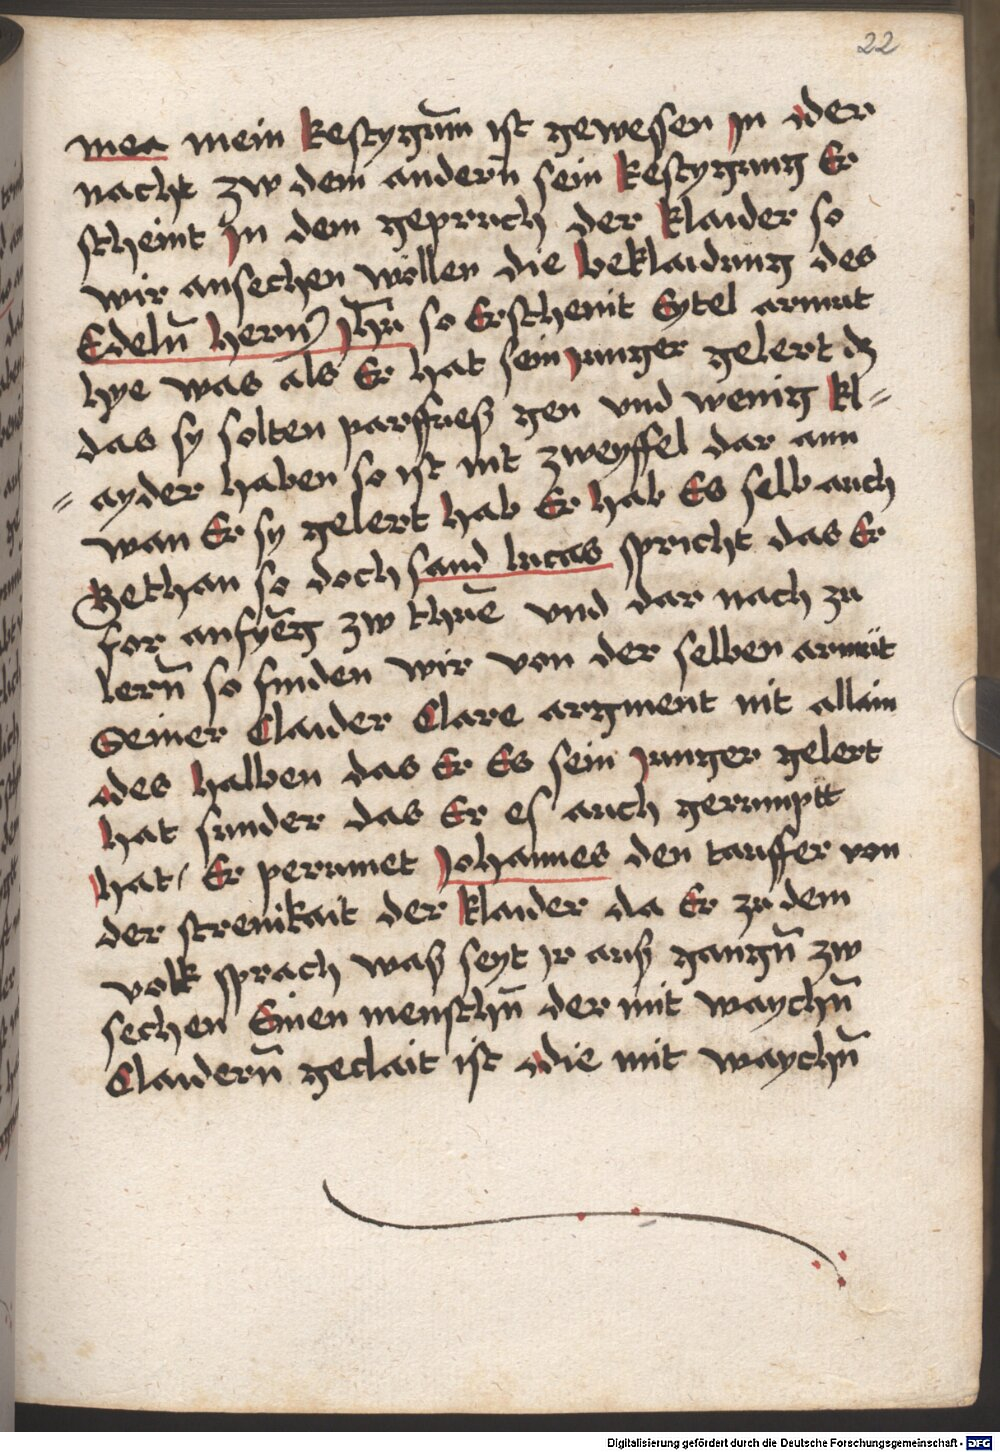 22
mea mein kestygūm ist gewessen jn der
nacht zw dem andern̄ sein kestygung Er
scheint jn dem gepruch der klaider so
wir ansechen wöllen die beklaidung des
Edeln̄ hern̄ Jhū so Erscheint Eytel armut
hye was als Er hat sein junger gelert dz
das sy solten parffueß gen vnd wenig kl=
=ayder haben so ist nit zweyffel dar ann
wan Er sy gelert hab Er hab Es selb auch
Gethan so doch sand lucas spricht das Er
for anfyēg zw thuē vnd dar nach zu
lern̄ so finden wir von der selben armüt
Seiner Claider Clare argment nit allain
des halben das Er Es sein junger gelert
hat sunder das Er es auch gerumptt
hat / Er perumet Johannes den tauffer von
der strenikait der klaider da Er zu dem
volk sprach waß seyt jr auß gangn̄ zw
sechen Einen menschn̄ der mit waychn̄
Claidern̄ geclait ist die mit waychn̄
Digitalisierung gefördert durch die Deutsche Forschungsgemeinschaft - DFG